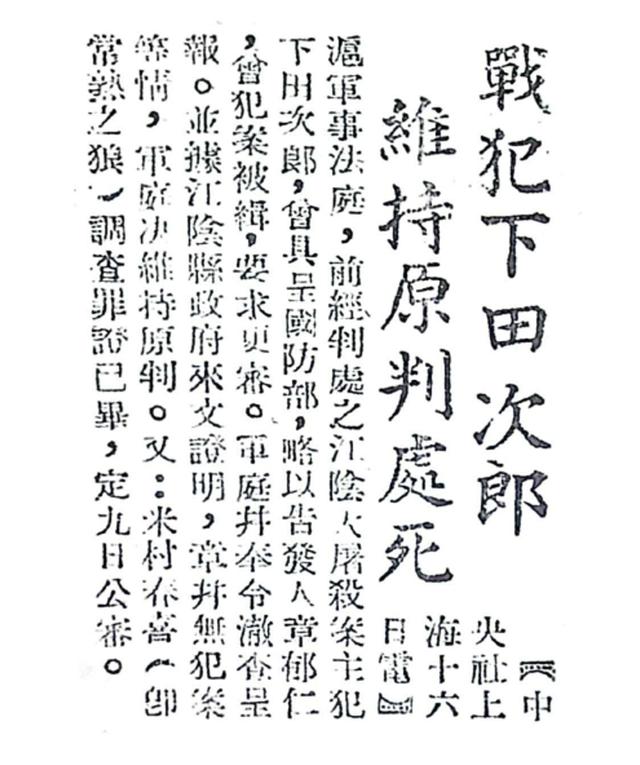 戰犯下田次郎
維持原判處死
【中
央社上
海十六
日電】
滬軍事法庭，前經判處之江陰大屠殺案主犯
下田次郞，曾具呈國防部，略以告發人章郁仁
，曾犯案被緝，要求更審。軍庭幷奉令澈查呈
報。並據江陰縣政府來文證明，章幷無犯案
等情，軍庭决維持原判。又：米村春喜（卽
常熟之狼）調查罪證已畢，定九日公審。